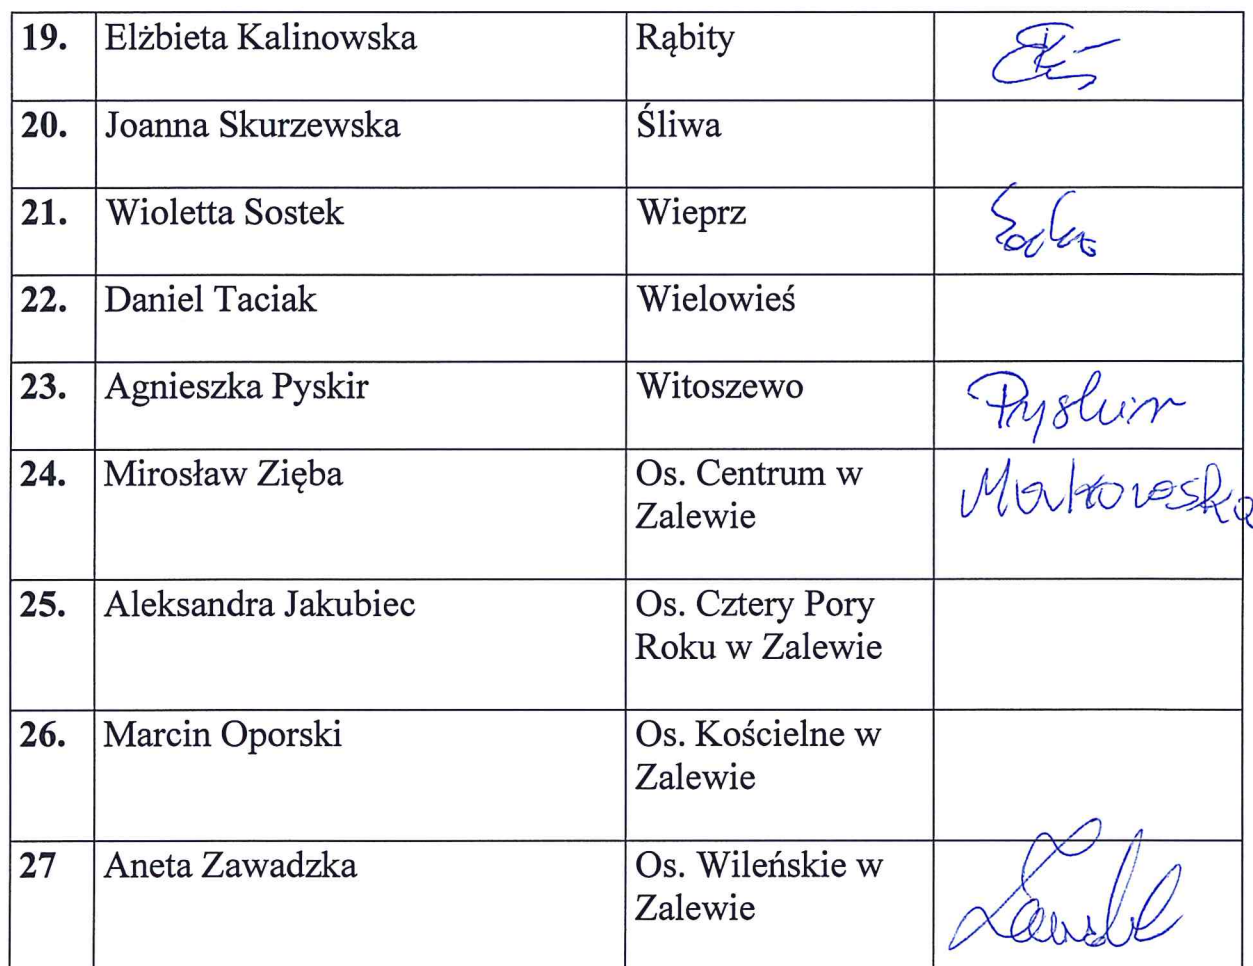 19. Elżbieta Kalinowska Rąbity
20. Joanna Skurzewska Śliwa
21. Wioletta Sostek Wieprz
22. Daniel Taciak Wielowieś
23. Agnieszka Pyskir Witoszewo Pyskir
24. Mirosław Zięba Os. Centrum w
Zalewie
25. Aleksandra Jakubiec Os. Cztery Pory
Roku w Zalewie
26. Marcin Oporski Os. Kościelne w
Zalewie
27 Aneta Zawadzka Os. Wileńskie w
Zalewie